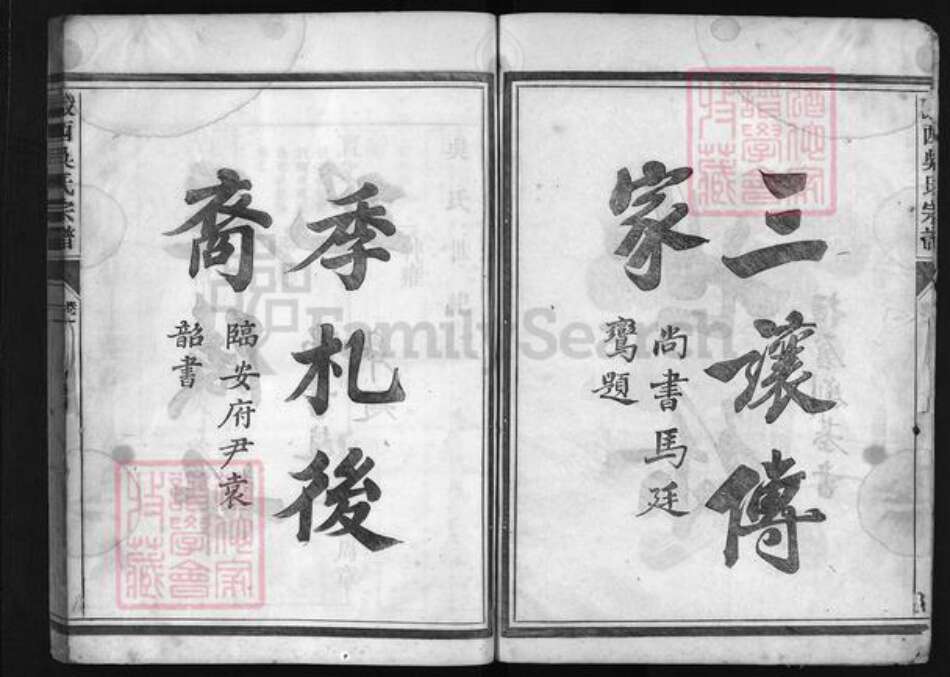 三讓傳
家
尚書馬廷
鸞題
季札後
裔
臨安府尹袁
韶書
西吳氏宗譜
FamilySearch
譜學會
收藏